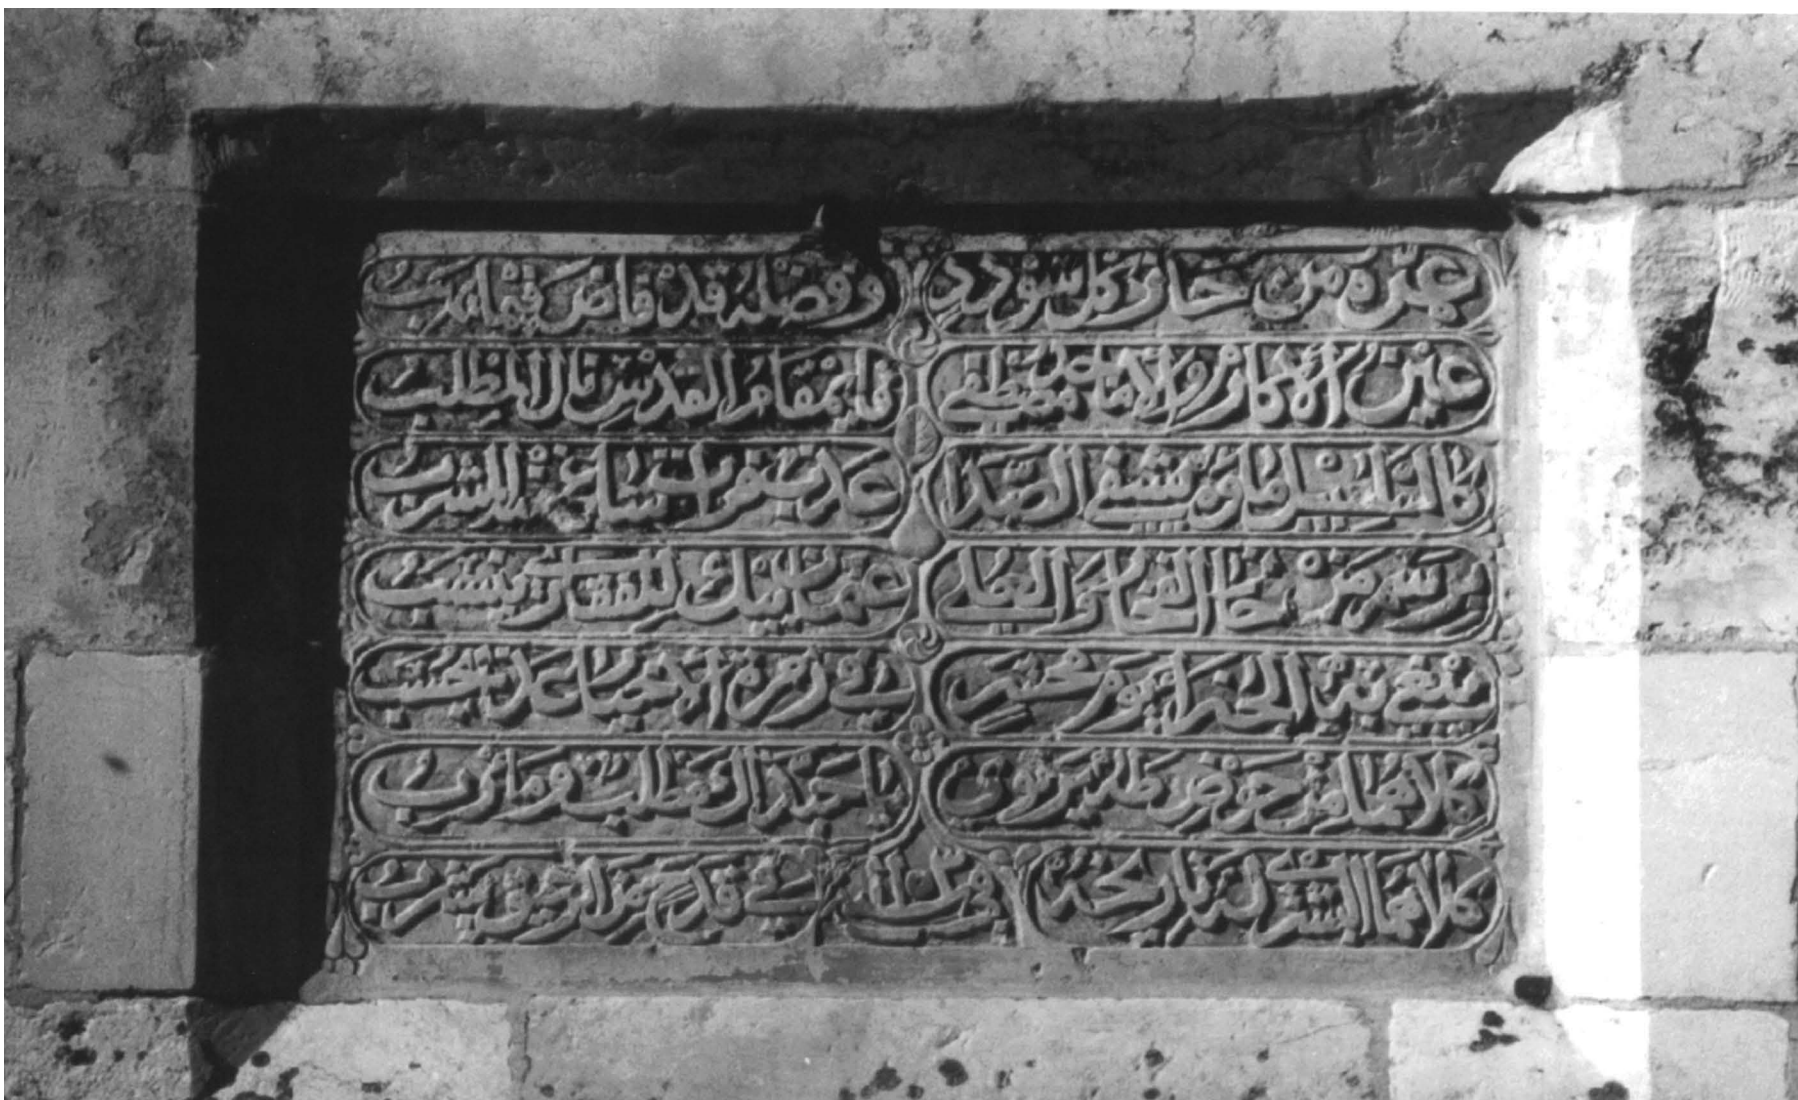 عمره من حاز كل سؤدد وفضله قد فاض فيما يهب
عين الأكارم والأماجد مصطفى قايمقام القدس نال المطلب
كالسلسبيل ماؤه يشفي الصدا عذب فرات ساغ منه المشرب
من سر من حاز الفخار والعلى عثمان بيك للفقاري ينسب
يبغي به الجزاء يوم محشر في زمرة الأخيار عدنا يحسب
كلاهما من حوض طه يرتوون يا حبذا ومأرب
كلاهما البشرى لنا تاريخه في قدح من الرحيق يشرب